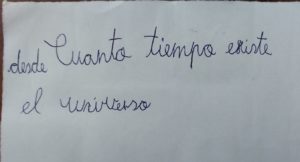 desde Cuanto tiempo existe
el universo